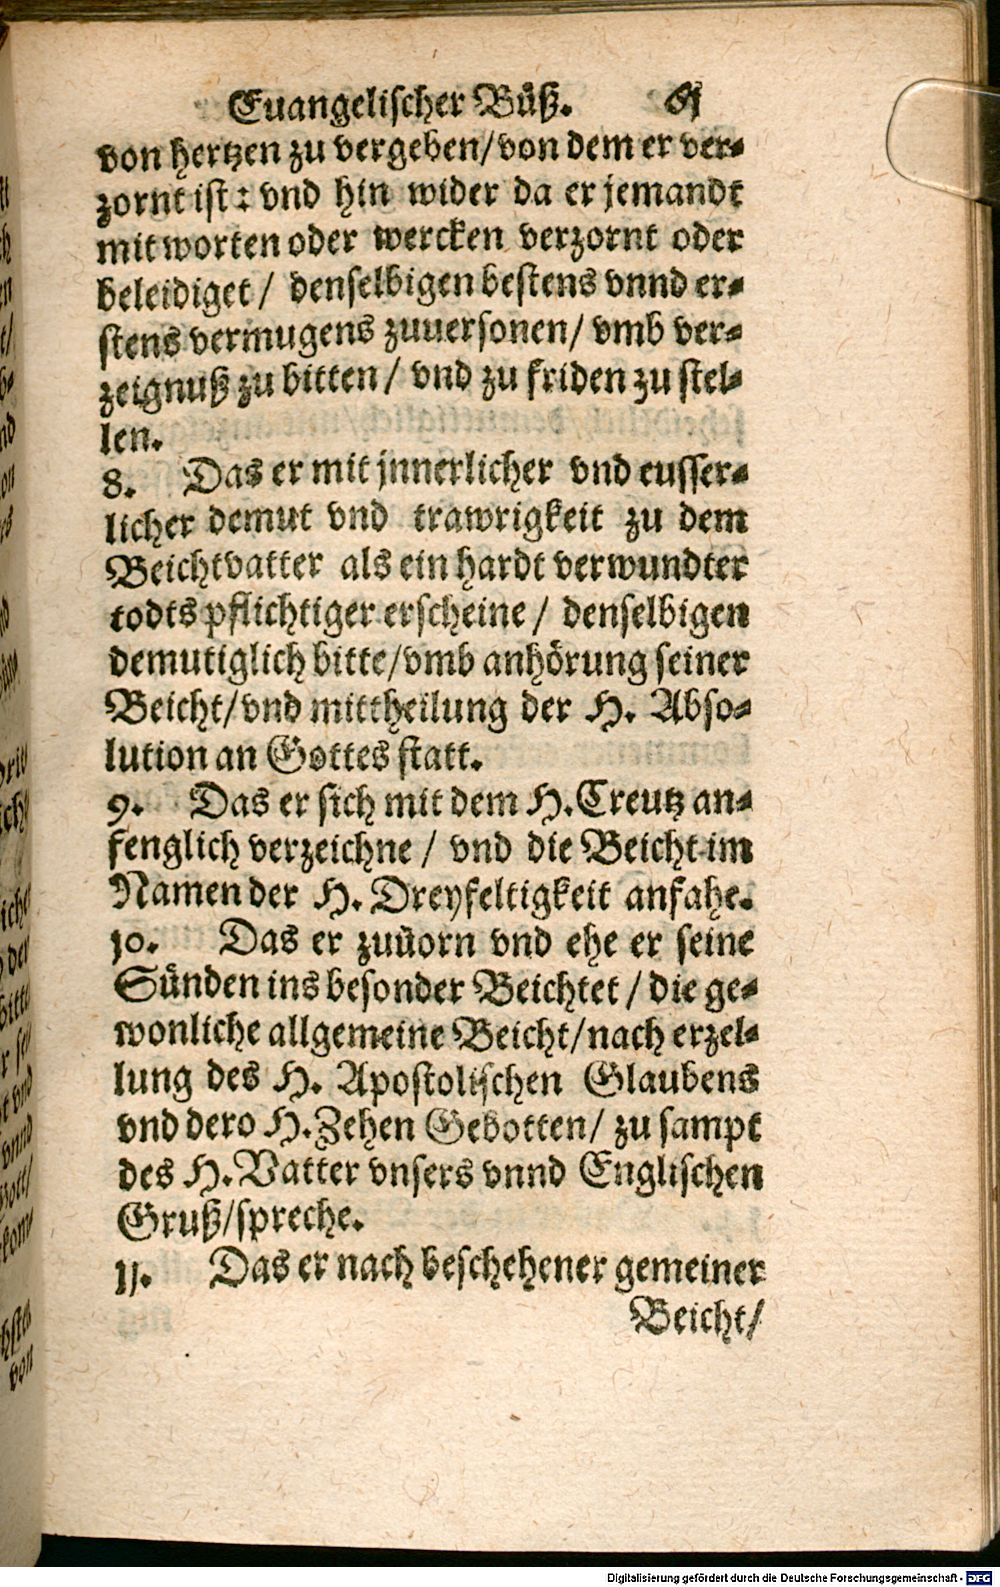 Euangelischer Bůß. 61
von hertzen zu vergeben/von dem er ver-
zornt ist: vnd hin wider da er jemandt
mit worten oder wercken verzornt oder
beleidiget/ denselbigen bestens vnnd er-
stens vermugens zuuersonen/ vmb ver-
zeignuß zu bitten/ vnd zu friden zu stel-
len.
8. Das er mit jnnerlicher vnd eusser-
licher demut vnd trawrigkeit zu dem
Beichtvatter als ein hardt verwundter
todts pflichtiger erscheine/ denselbigen
demutiglich bitte/vmb anhörung seiner
Beicht/vnd mittheilung der H. Abso-
lution an Gottes statt.
9. Das er sich mit dem H. Creutz an-
fenglich verzeichne/ vnd die Beicht im
Namen der H. Dreyfeltigkeit anfahe.
10. Das er zuuorn vnd ehe er seine
Sünden ins besonder Beichtet/ die ge-
wonliche allgemeine Beicht/nach erzel-
lung des H. Apostolischen Glaubens
vnd dero H. Zehen Gebotten/ zu sampt
des H. Vatter vnsers vnnd Englischen
Gruß/spreche.
11. Das er nach beschehener gemeiner
Beicht/
Digitalisierung gefördert durch die Deutsche Forschungsgemeinschaft - DFG